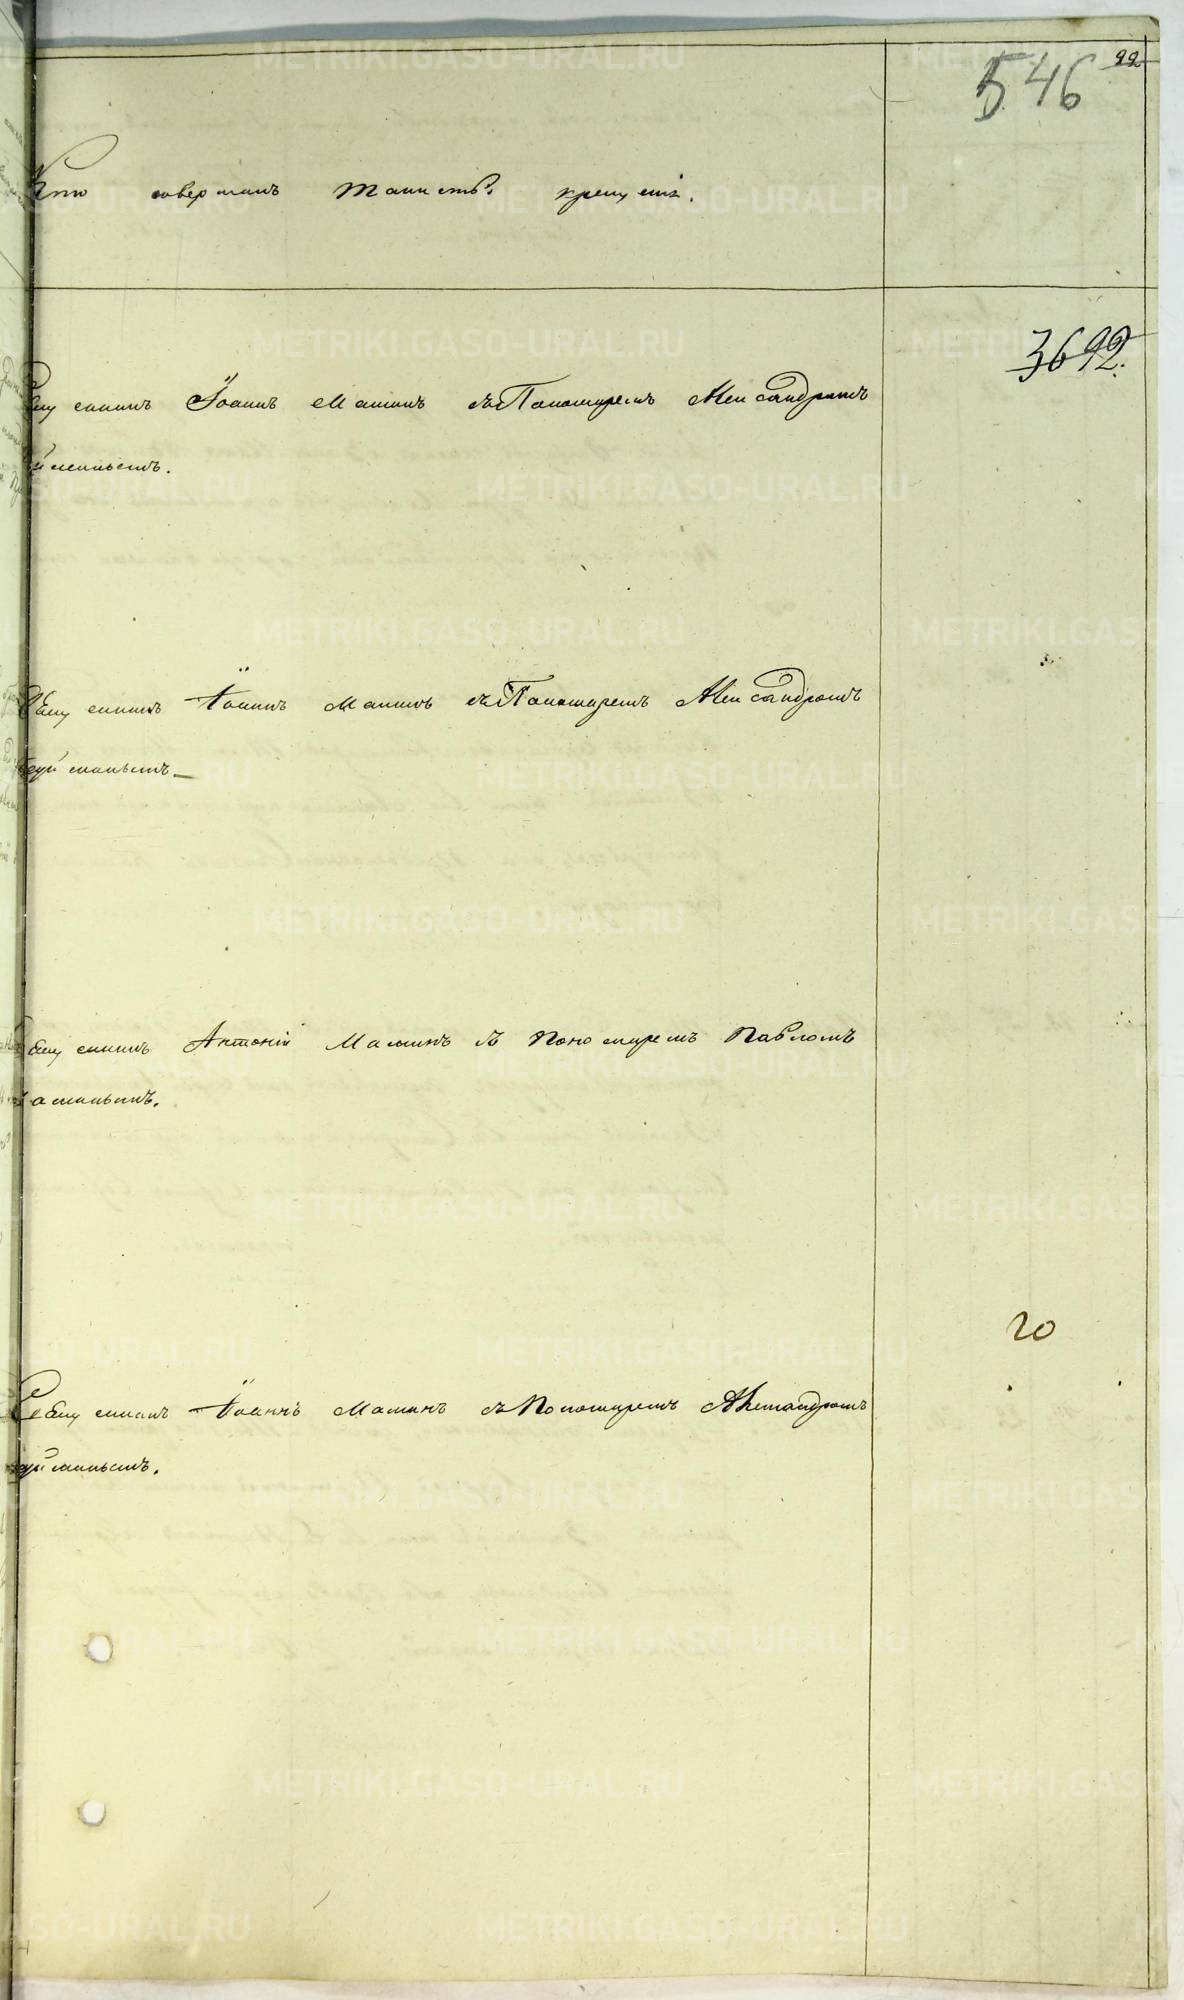 546
22
Кто совершалъ таинств. крещенія.
3692.
Священникъ Іоаннъ Маминъ съ Пономаремъ Александромъ
Священникъ Іоаннъ Маминъ съ Пономаремъ Александромъ
Священникъ Антоній Маминъ съ Пономаремъ Павломъ
Маминымъ.
20
Священникъ Іоаннъ Маминъ съ Пономаремъ Александромъ
METRIKI.GASO-URAL.RU